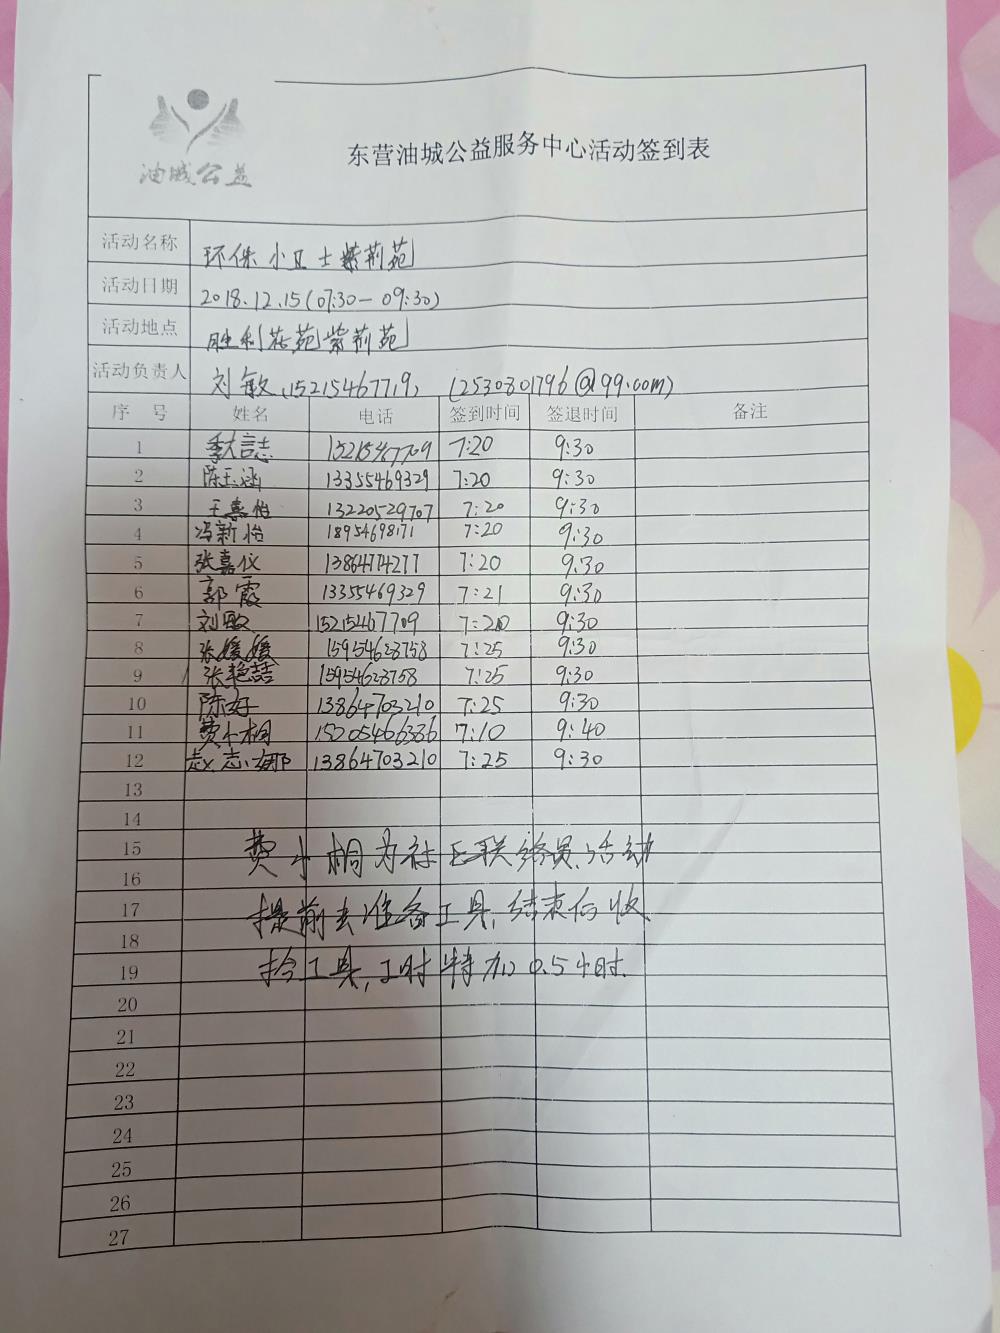 油城公益
东营油城公益服务中心活动签到表
活动名称 环保小卫士紫荆苑
活动日期 2018.12.15(07:30-09:30)
活动地点 胜利花苑紫荆苑
活动负责人 刘敏(15215467719) (2530301796@qq.com)
序 号 姓名 电话 签到时间 签退时间 备注
1 季大言志 15215467709 7:20 9:30
2 陈玉涵 13355469329 7:20 9:30
3 王嘉怡 13220529707 7:20 9:30
4 冯新怡 18954698171 7:20 9:30
5 张嘉仪 13864774277 7:20 9:30
6 郭霞 13355469329 7:21 9:30
7 刘敏 15215467709 7:20 9:30
8 张媛媛 15954628758 7:25 9:30
9 张艳喆 15954628758 7:25 9:30
10 陈好 13864703210 7:25 9:30
11 费小桐 15205466386 7:10 9:40
12 赵志娜 13864703210 7:25 9:30
13
14
15 费小桐为社区联络员,活动
16
17 提前去准备工具,结束后收
18
19 拾工具,工时特加0.5小时.
20
21
22
23
24
25
26
27